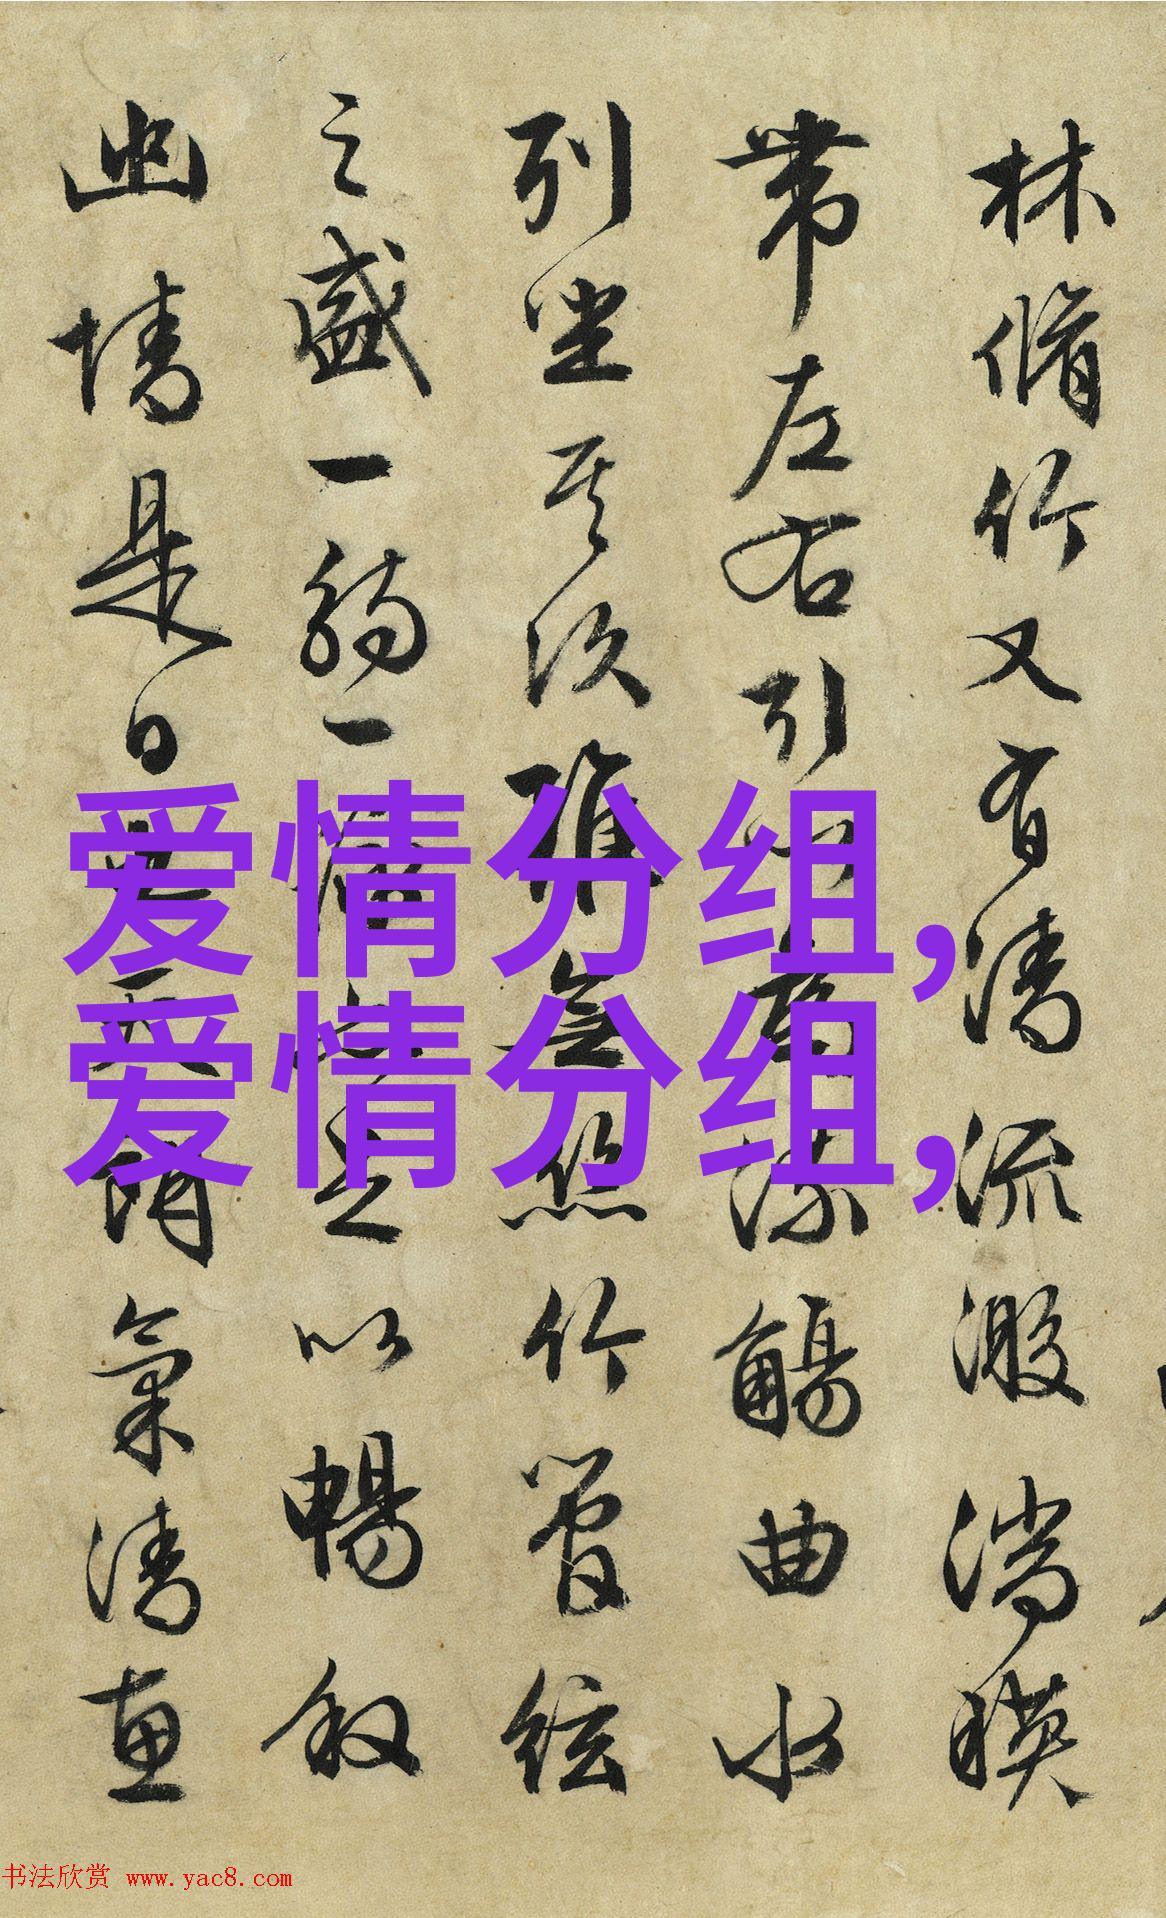 林脩竹又有清流激湍暎
帶左右引以為流觴曲水
列坐其次雖無絲竹管絃
之盛一觴一詠亦足以暢叙
幽情是日也天朗氣清惠
爱情分组,
爱情分组,
书法欣赏 www.yac8.com